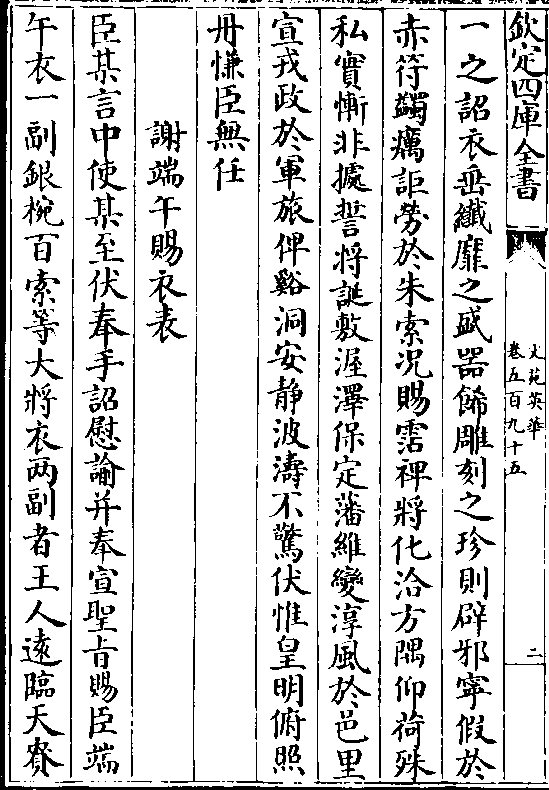 欽定四庫全書
文苑英華
卷五百九十五
二
一之詔衣垂纎靡之盛器餙雕刻之珍則辟邪寧假於
赤符蠲癘詎勞於朱索况賜霑裨將化洽方隅仰荷殊
私實慚非據誓將誕敷渥澤保定藩維變淳風於邑里
宣戎政於軍旅俾谿洞安静波濤不驚伏惟皇明俯照
丹慊臣無任
謝端午賜衣表
臣某言中使某至伏奉手詔慰諭并奉宣聖旨賜臣端
午衣一副銀椀百索等大將衣两副者王人遠臨天賚